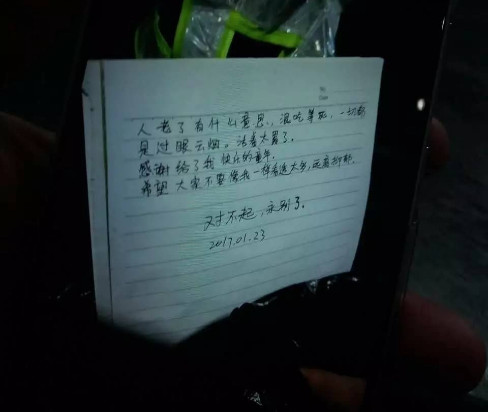 人老了有什么意思，混吃等死，一切都
是过眼云烟。活着太累了。
感谢给了我快乐的童年。
希望大家不要像我一样看透太多，远离抑郁。
对不起，永别了。
2017.01.23